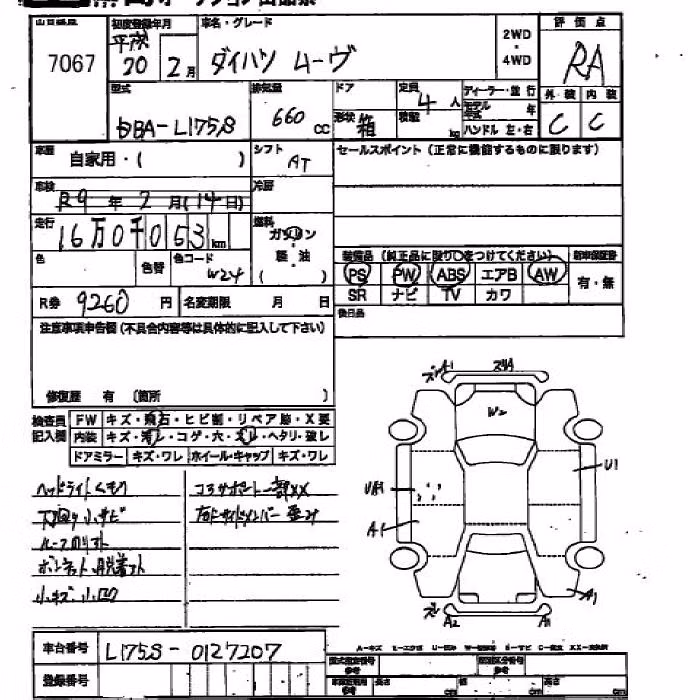 7067
初度登録年月
平成
20 2月
車名・グレード
ダイハツ ムーヴ
2WD
・
4WD
評価点
RA
型式
DBA-L175S
排気量
660 CC
ドア
形状 箱
定員 4 人
積載 kg
ディーラー・並 行
モデル
年式 年
ハンドル 左・右
外・装 内・装
C C
車歴
自家用・( )
シフト AT
セールスポイント (正常に機能するものに限ります)
車検
R9 年 2 月(14日)
冷房
走行
16万0千053km
燃料
ガソリン
軽・油
( )
色
色替
色コード
W24
装備品 (純正品に限り○をつけてください)
PS PW ABS エアB AW
SR ナビ TV カワ
新車保証書
有・無
R券 9260 円
名変期限 月 日
後日品
注意事項申告欄 (不具合内容等は具体的に記入して下さい)
修復歴 有 (箇所 )
検査員
記入欄
FW キズ・飛石・ヒビ割・リペア跡・X要
内装 キズ・汚レ・コゲ・穴・スレ・ヘタリ・破レ
ドアミラー キズ・ワレ ホイール・キャップ キズ・ワレ
ヘッドライトくもり
下回り小サビ
小キズ・小凹
コアサポート一部XX
A1
W2
U1
A1
A1
A2
車台番号 L175S-0127207
登録番号
型式指定番号
参考
類別区分番号
参考
長さ cm
幅 cm
高さ cm